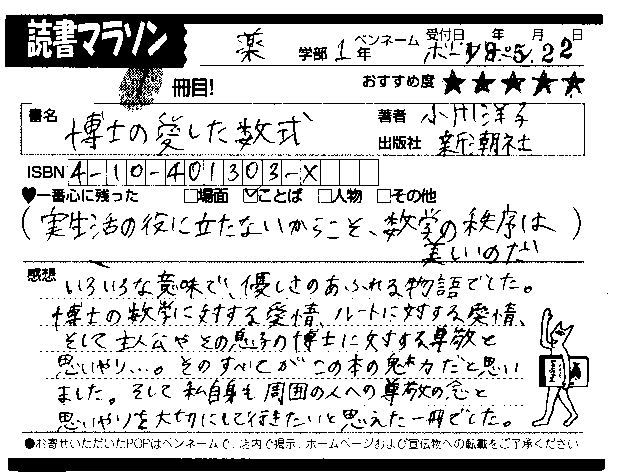 読書マラソン
薬 学部 1年 ペンネーム 受付日 年 月 日
5.22
冊目! おすすめ度 ★★★★★
書名 博士の愛した数式
著者 小川洋子
出版社 新潮社
ISBN 4-10-401303-X
♥一番心に残った □場面 ☑ことば □人物 □その他
(実生活の役に立たないからこそ、数学の秩序は
美しいのだ)
感想 いろいろな意味で、優しさのあふれる物語でした。
博士の数学に対する愛情、ルートに対する愛情、
そして主人公やその息子の博士に対する尊敬と
思いやり…。そのすべてがこの本の魅力だと思い
ました。そして私自身も周囲の人への尊敬の念と
思いやりを大切にして行きたいと思えた一冊でした。
●お寄せいただいたPOPはペンネームで、店内で掲示、ホームページおよび宣伝物への転載をご了承ください